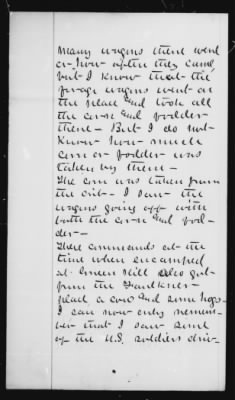 many wagons there were
or how often they came
but I know that the
forage wagons went on
the place and took all
the corn and fodder
there - But I do not
know how much
corn or fodder was
taken by them -
The corn was taken from
the crib - I saw the
wagons going off with
both the corn and fod-
der -
These commands at the
time when encamped
at Green Hill also got
from the Faulkner
place a cow and some hogs -
I can now only remem-
ber that I saw some
of the U.S. soldiers driv-